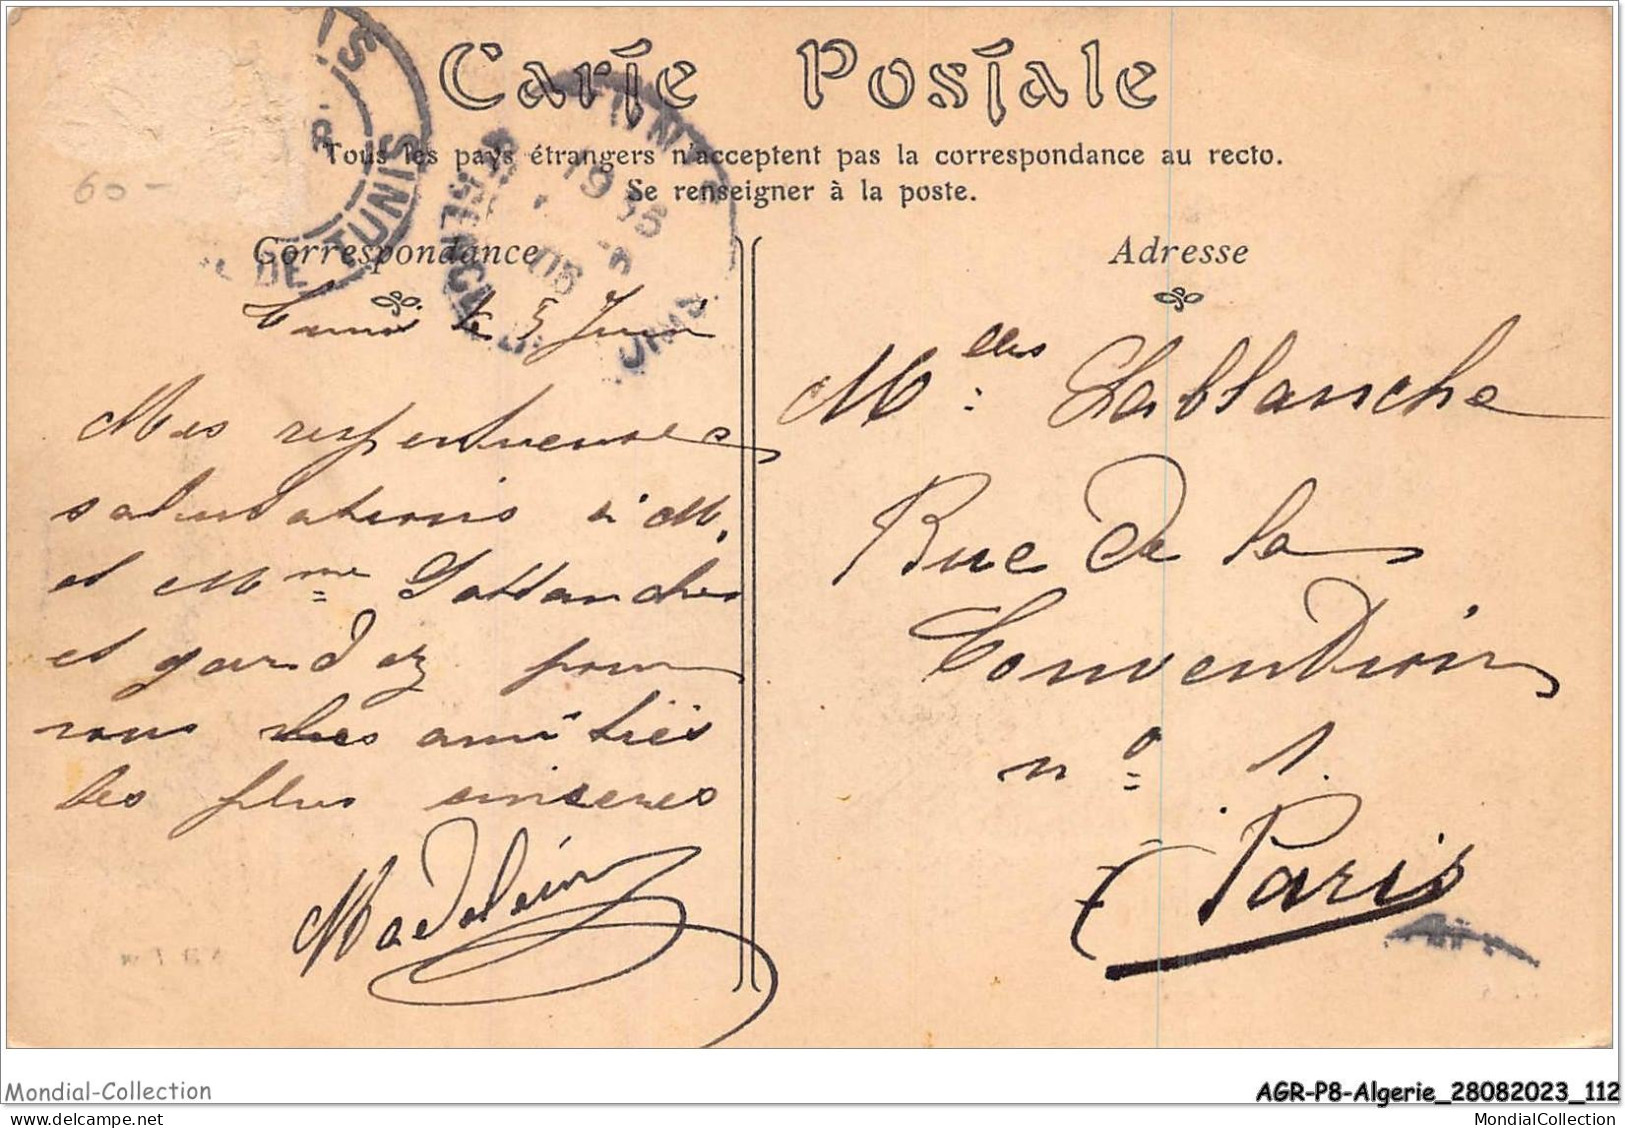 Carte Postale
Tous les pays étrangers n'acceptent pas la correspondance au recto.
Se renseigner à la poste.
60 -
DE TUNIS
Correspondance
Tunis le 5 Juin
Mes respectueuses
salutations à M.
et Mme Lablanche
et gardez pour
vous les amitiés
les plus sinceres
Madeleine
Adresse
Melles Lablanche
Rue de la
Convention
no 1.
Paris
Mondial-Collection
AGR-P8-Algerie_28082023_112
MondialCollection